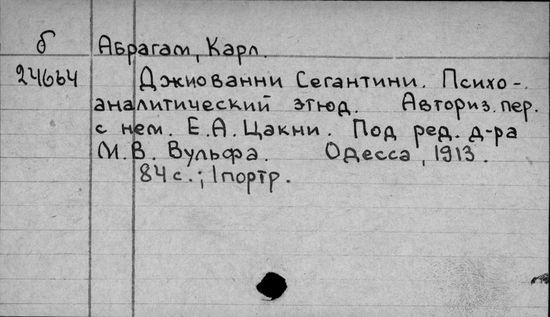 б
24664
Абрагам, Карл.
Джиованни Сегантини. Психо-
аналитический этюд. Авториз. пер.
с нем. Е. А. Цакни. Под ред. д-ра
М. В. Вульфа. Одесса, 1913.
84 с.; 1 портр.